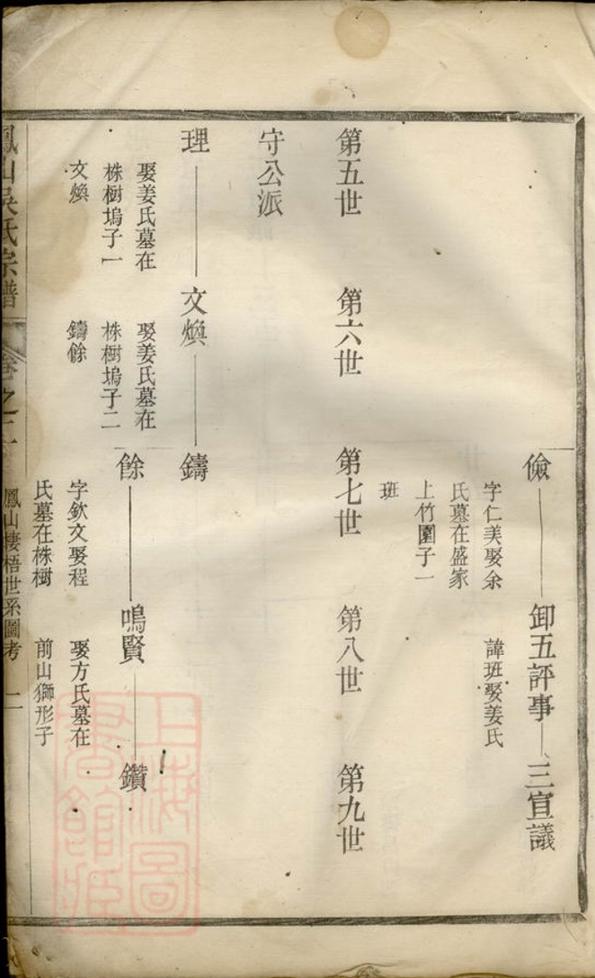 儉 卸五評事 三宣議
字仁美娶余 諱班娶姜氏
氏墓在盛家
上竹園子一
班
第五世 第六世 第七世 第八世 第九世
守公派
理 文煥 鑄
娶姜氏墓在 娶姜氏墓在
株樹塢子一 株樹塢子二
文煥 鑄餘
餘 鳴賢 鑽
字欽文娶程 娶方氏墓在
氏墓在株樹 前山獅形子
鳳山吳氏宗譜 卷之二 鳳山棲梧世系圖考 二
上海圖書館藏